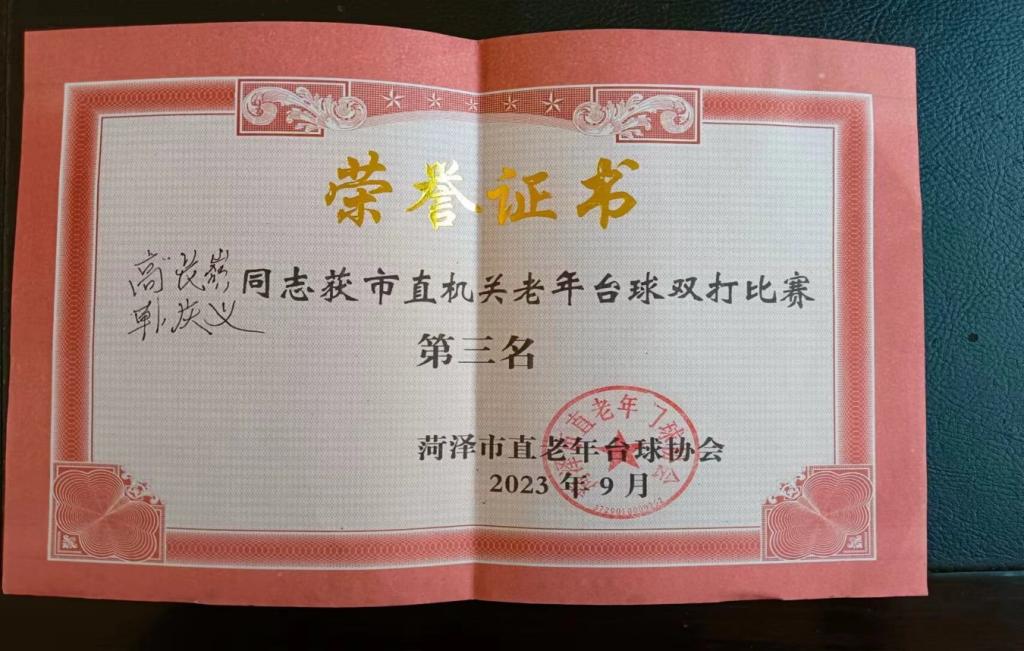 荣誉证书
高长岭 同志获市直机关老年台球双打比赛
庆义
第三名
菏泽市直老年台球协会
2023 年 9 月
菏泽市直老年门球协会